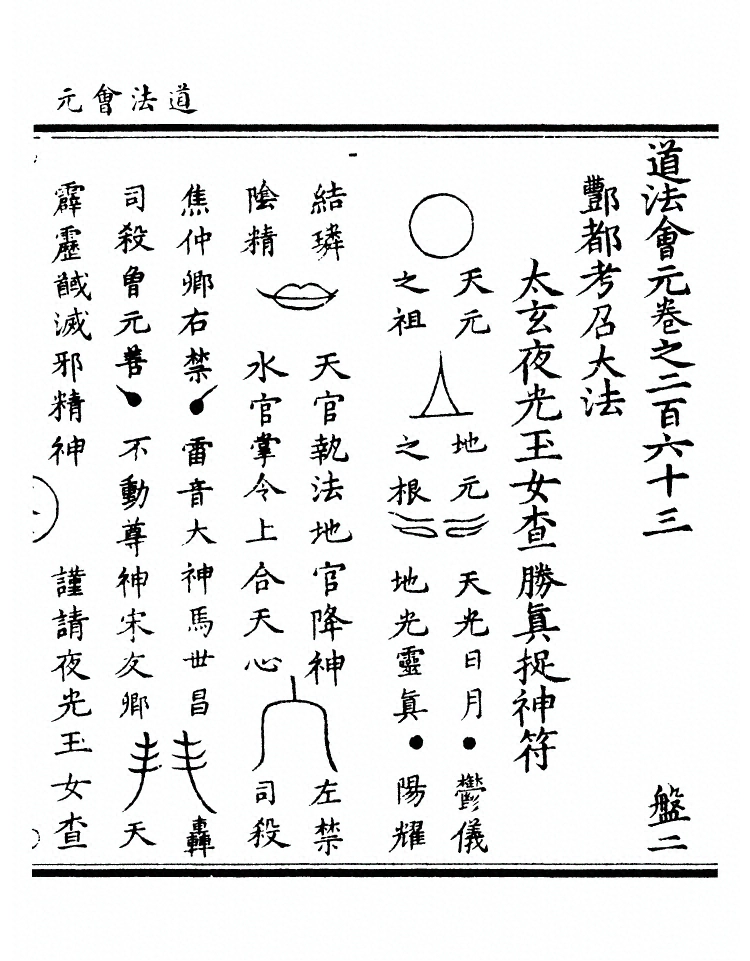 道法會元
道法會元卷之二百六十三 盤二
酆都考召大法
太玄夜光玉女查勝眞捉神符
天元 地元 天光日月 鬱儀
之祖 之根 地光靈眞 陽耀
結璘 天官執法地官降神 左禁
陰精 水官掌令上合天心 司殺
焦仲卿右禁 雷音大神馬世昌 轟
司殺魯元善 不動尊神宋友卿 天
霹靂馘滅邪精神 謹請夜光玉女查